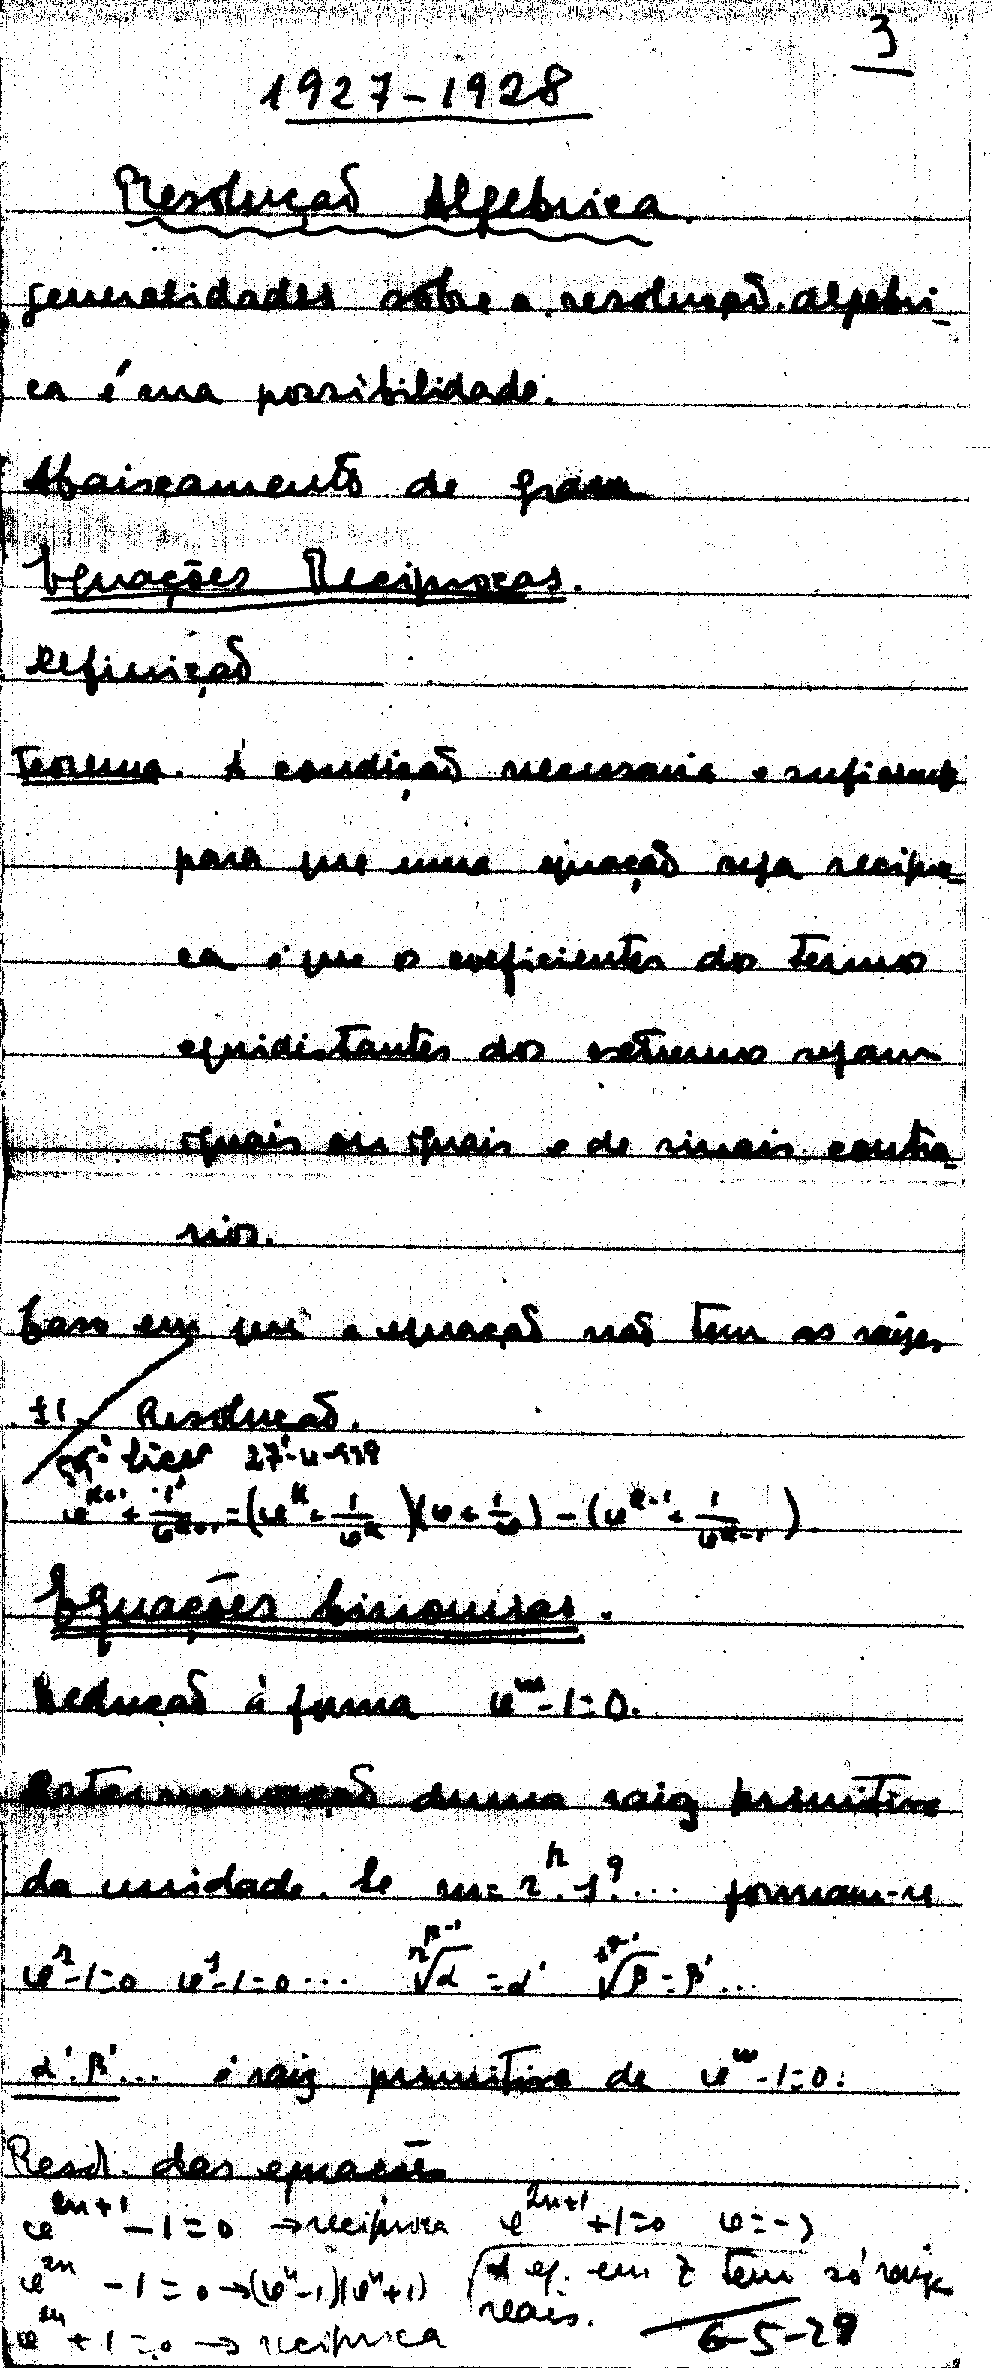 3
1927-1928
Resolução Algebrica.
Generalidades sobre a resolução algebri-
ca e sua possibilidade.
Abaixamento de grau
Equações Reciprocas.
Definição
Teorema. A condição necessaria e suficiente
para que uma equação seja recipro-
ca é que os coeficientes dos termos
equidistantes dos extremos sejam
iguais ou iguais e de sinais contra-
rios.
Caso em que a equação não tem as raizes
±1. Resolução.
φ^{k+1} + 1/φ^{k+1} = (φ^k + 1/φ^k)(φ + 1/φ) - (φ^{k-1} + 1/φ^{k-1})
Equações binomias.
Redução á forma φ^m - 1 = 0.
Determinação duma raiz primitiva
da unidade. Se m = r^p . s^q ... formam-se
φ^r - 1 = 0 φ^s - 1 = 0 ... \sqrt[r^{p-1}]{α} = α' \sqrt[s^{q-1}]{β} = β' ...
α'. β' ... é raiz primitiva de φ^m - 1 = 0.
Resol. das equações
φ^{2n+1} - 1 = 0 → reciproca φ^{2n+1} + 1 = 0
φ^{2n} - 1 = 0 → (φ^n - 1)(φ^n + 1) A eq. em z tem só raizes
φ^{2n} + 1 = 0 → reciproca reais.
6-5-29